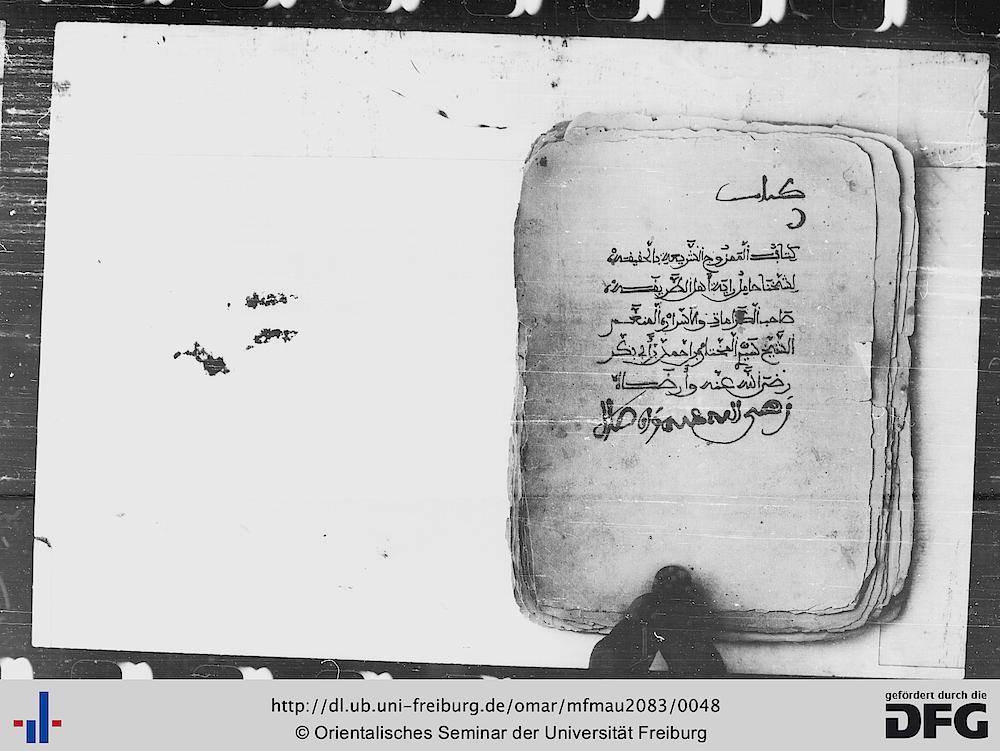 كتاب
كتاب الممزوج الشريعة بالحقيقة
لشيخنا حامل راية أهل الطريقة
صاحب الكرامات والأسرار
الشيخ سيد المختار بن أحمد بن أبي بكر
رضي الله عنه وأرضاه
رضي الله عنه
http://dl.ub.uni-freiburg.de/omar/mfmau2083/0048
© Orientalisches Seminar der Universität Freiburg
gefördert durch die
DFG